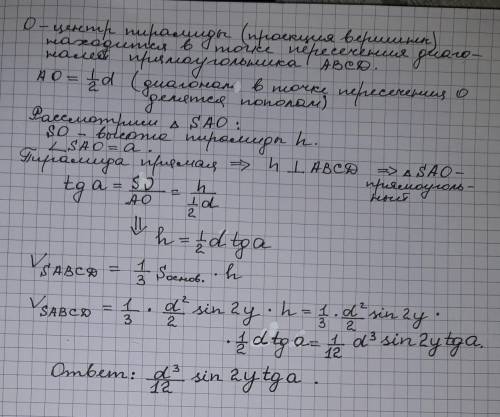 О-центр пирамиды (проекция вершины)
находится в точке пересечения диаго-
налей прямоугольника ABCD.
AO = 1/2 d (диагонали в точке пересечения O
делятся пополам)
Рассмотрим △ SAO:
SO - высота пирамиды h.
∠SAO = a.
Пирамида прямая ⇒ h ⊥ ABCD ⇒ △ SAO -
прямоуголь-
ный
tg a = SO/AO = h/(1/2 d)
⇓
h = 1/2 d tg a
V_SABCD = 1/3 S основ. · h
V_SABCD = 1/3 · d²/2 sin 2y · h = 1/3 · d²/2 sin 2y ·
· 1/2 d tg a = 1/12 d³ sin 2y tg a.
Ответ: d³/12 sin 2y tg a .